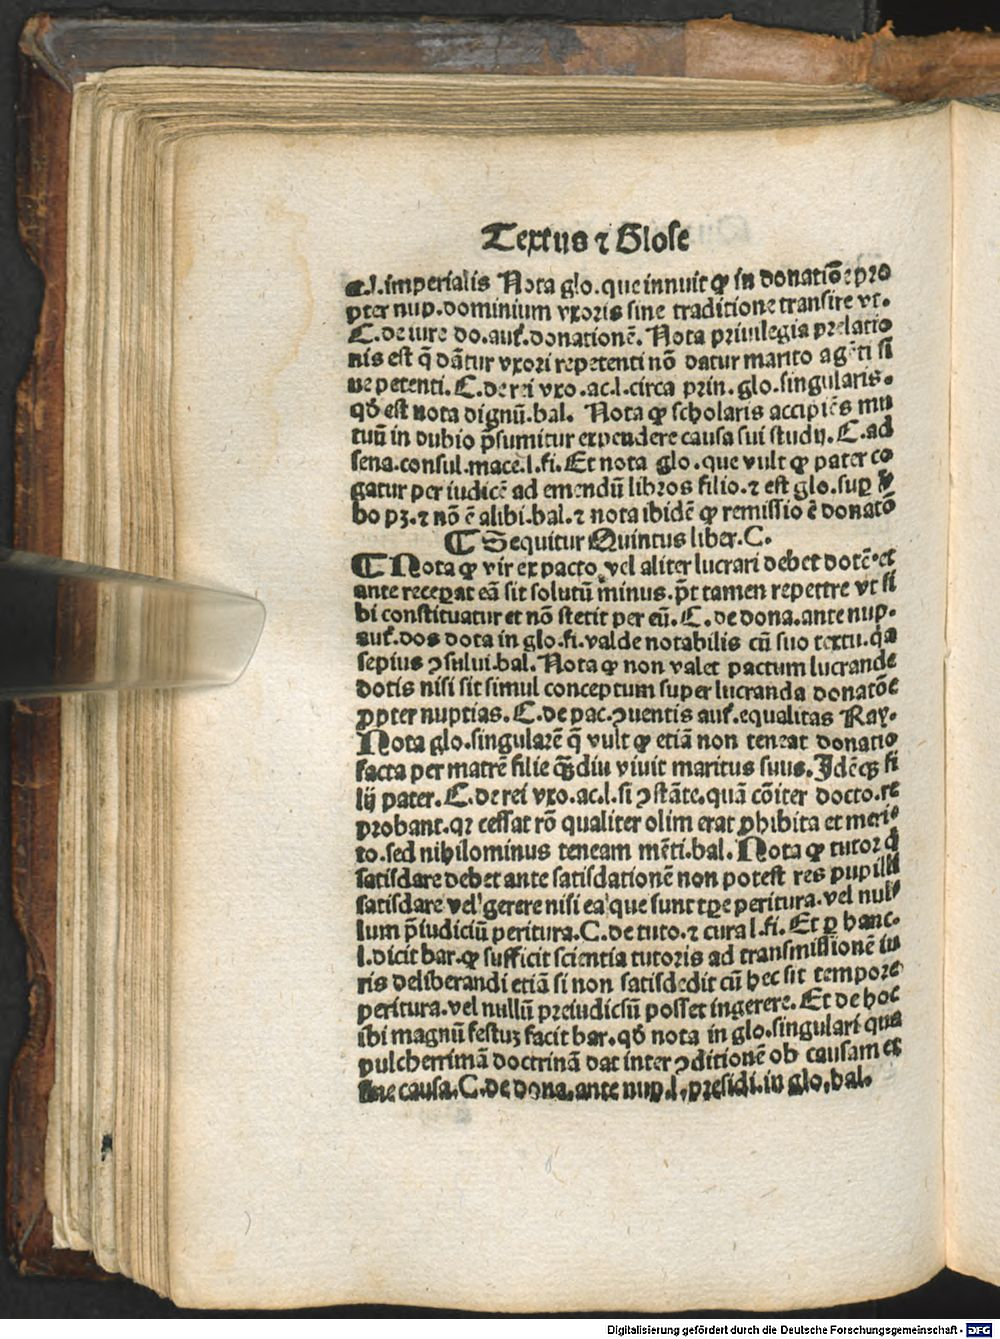 Textus ⁊ Glose
e.l.imperialis Nota glo.que innuit ꝙ in donatiõe pro
pter nup.dominium vxoris sine traditione transire vt.
C.de iure do.auf.donationẽ. Nota priuilegia prelatio
nis est q̃ dãtur vxori repetenti nõ datur marito agẽti si
ue petenti.C.de rei vxo.ac.l.circa prin.glo.singularis.
qđ est nota dignũ.bal. Nota ꝙ scholaris accipiẽs mu
tuũ in dubio p̃sumitur expendere causa sui studij.C.ad
sena.consul.macẽ.l.fi.Et nota glo.que vult ꝙ pater co
gatur per iudicẽ ad emendũ libros filio.⁊ est glo.suꝑ
bo pꝫ.⁊ nõ ẽ alibi.bal.⁊ nota ibidẽ ꝙ remissio ẽ donatõ
¶ Sequitur Quintus liber.C.
¶ Nota ꝙ vir ex pacto vel aliter lucrari debet dotẽ.et
ante receꝑat eã sit solutũ minus.p̃t tamen repettre vt si
bi constituatur et nõ stetit per eũ.C.de dona.ante nup.
auf.dos dota in glo.fi.valde notabilis cũ suo textu.q̃a
sepius ꝯsului.bal.Nota ꝙ non valet pactum lucrande
dotis nisi sit simul conceptum super lucranda donatõe
ꝓpter nuptias.C.de pac.ꝯuentis auf.equalitas Ray.
Nota glo.singularẽ q̃ vult ꝙ etiã non teneat donatio
facta per matrẽ filie qƺdiu viuit maritus suus.Idẽqƺ fi
lij pater.C.de rei vxo.ac.l.si ꝯstãte.quã cõiter docto.re
probant.qꝛ cessat rõ qualiter olim erat ꝓhibita et meri
to.sed nihilominus teneam mẽti.bal.Nota ꝙ tutor q̃
satisdare debet ante satisdationẽ non potest res pupilli
satisdare vel gerere nisi ea que sunt tꝑe peritura.vel nul
lum p̃iudiciũ peritura.C.de tuto.⁊ cura l.fi. Et ꝑ hanc.
l.dicit bar.ꝙ sufficit scientia tutoris ad transmissionẽ iu
ris deliberandi etiã si non satisdedit cũ hec sit tempore
peritura.vel nullũ preiudiciũ posset ingerere. Et de hoc
ibi magnũ festuꝫ facit bar.qđ nota in glo.singulari qua
pulcherrimã doctrinã dat inter ꝯditionẽ ob causam et
sine causa.C.de dona.ante nup.l.presidi.in glo.bal.
Digitalisierung gefördert durch die Deutsche Forschungsgemeinschaft - DFG